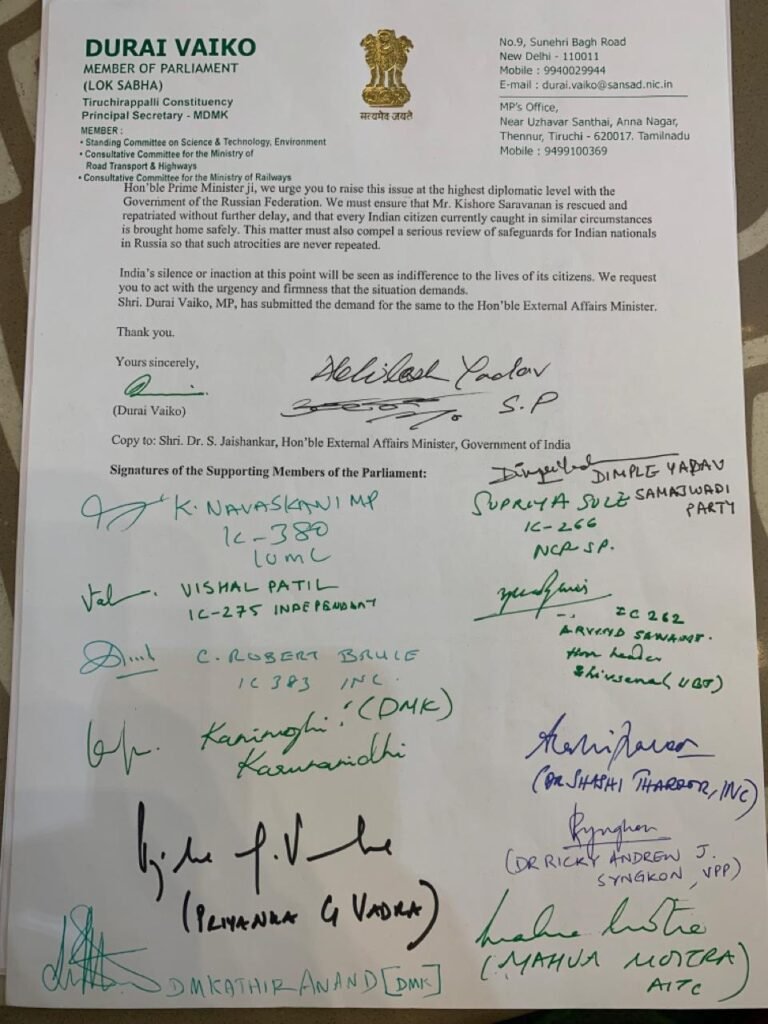 DURAI VAIKO
MEMBER OF PARLIAMENT
(LOK SABHA)
Tiruchirappalli Constituency
Principal Secretary - MDMK
MEMBER :
• Standing Committee on Science & Technology, Environment
• Consultative Committee for the Ministry of
Road Transport & Highways
• Consultative Committee for the Ministry of Railways
सत्यमेव जयते
No.9, Sunehri Bagh Road
New Delhi - 110011
Mobile : 9940029944
E-mail : durai.vaiko@sansad.nic.in
MP's Office,
Near Uzhavar Santhai, Anna Nagar,
Thennur, Tiruchi - 620017. Tamilnadu
Mobile : 9499100369
Hon'ble Prime Minister ji, we urge you to raise this issue at the highest diplomatic level with the
Government of the Russian Federation. We must ensure that Mr. Kishore Saravanan is rescued and
repatriated without further delay, and that every Indian citizen currently caught in similar circumstances
is brought home safely. This matter must also compel a serious review of safeguards for Indian nationals
in Russia so that such atrocities are never repeated.
India's silence or inaction at this point will be seen as indifference to the lives of its citizens. We request
you to act with the urgency and firmness that the situation demands.
Shri. Durai Vaiko, MP, has submitted the demand for the same to the Hon'ble External Affairs Minister.
Thank you.
Yours sincerely,
(Durai Vaiko)
Akhilesh Yadav
S.P
Copy to: Shri. Dr. S. Jaishankar, Hon'ble External Affairs Minister, Government of India
Signatures of the Supporting Members of the Parliament:
DIMPLE YADAV
SAMAJWADI
PARTY
K. NAVASKANI MP
IC-380
IUML
SUPRIYA SULE
IC-266
NCP SP.
VISHAL PATIL
IC-275 INDEPENDENT
IC 262
ARVIND SAWANT.
Hon leader
Shivsena (UBT)
C. ROBERT BRUCE
IC 383 INC.
Kanimozhi (DMK)
Karunanidhi
(DR SHASHI THAROOR, INC)
(PRIYANKA G VADRA)
(DR RICKY ANDREW J.
SYNGKON, VPP)
Mahua Moitra
(MAHUA MOITRA)
AITC
DM KATHIR ANAND [DMK]